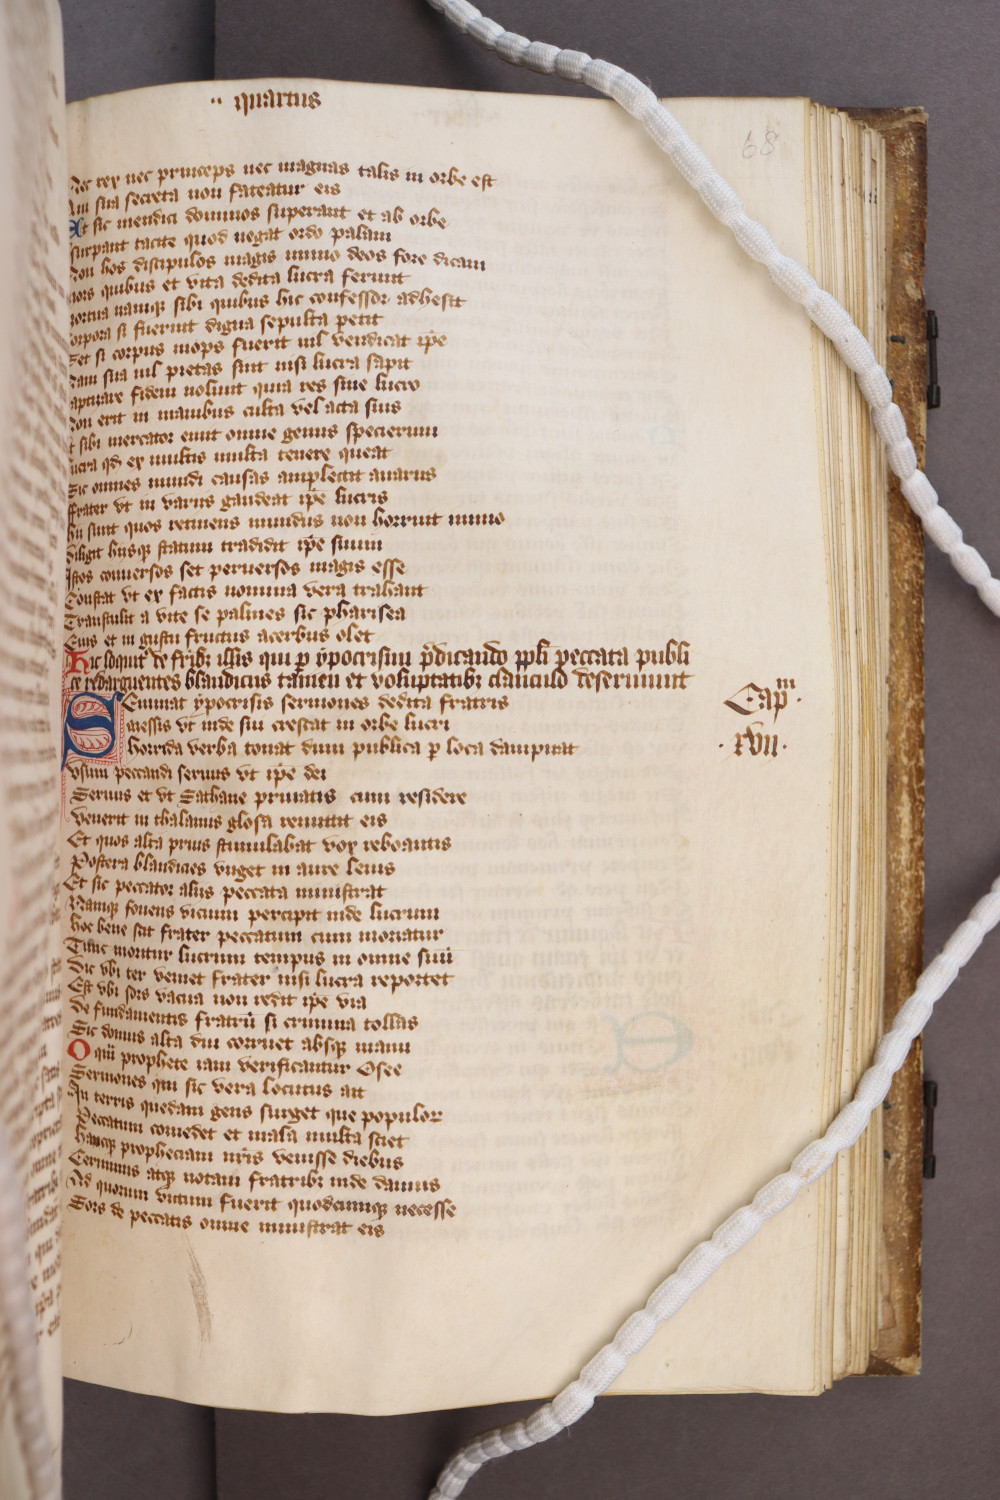 ·· quartus
68
Nec rex nec princeps nec magnas talis in orbe est
Qui sua secreta non fateatur eis
Et sic mendici dominos superant et ab orbe
Usurpant tacite quod negat ordo palam
Non hos discipulos magis immo deos fore dicam
Mors quibus et vita dedita lucra ferunt
Mortua namqꝫ sibi quibus hic confessor adhesit
Corpora si fuerint digna sepulta petit
Set si corpus inops fuerit nil vendicat ip̄e
Nam sua nil pietas sint nisi lucra sapit
Baptizare fidem nolunt quia res sine lucro
Non erit in manibus culta vel acta suis
Et sibi mercator emit omne genus specierum
Lucra qd̓ ex multis multa tenere queat
Sic omnes mundi causas amplectit auarus
Frater vt in variis gaudeat ip̄e lucris
Hii sunt quos retinens mundus non horruit immo
Diligit hiisqꝫ statum tradidit ip̄e suum
Istos conuersos set peruersos magis esse
Constat vt ex factis nomina vera trahant
Transtulit a vite se palmes sic pharisea
Eius et in gustu fructus acerbus olet
Hic loquit̉ de fr̄ibꝫ illis qui ꝑ ypocrisim p̄dicando ppl̄i peccata publi
ce redarguentes blandiciis tamen et voluptatibꝫ clanculo deseruiunt
Cap̄ᵐ·
·xvii·
Seminat ypocrisis sermones dedita fratris
messis vt inde sui crescat in orbe lucri
Horrida verba tonat dum publica ꝑ loca dampnat
vsum peccandi seruus vt ip̄e dei
Seruus et vt Sathane priuatis cum residere
Venerit in thalamis glosa remittit eis
Et quos alta prius stimulabat vox reboantis
Postera blandicies vnget in aure leuis
Et sic peccator aliis peccata ministrat
Namqꝫ fouens vicium percipit inde lucrum
Hoc bene scit frater peccatum cum moriatur
Tunc moritur lucrum tempus in omne suū
Dic vbi ter veniet frater nisi lucra reportet
Est vbi sors vacua non redit ip̄e via
De fundamentis fratrū si crimina tollas
Sic domus alta diu corruet absqꝫ manu
O quā prophete iam verificantur Osee
Sermones qui sic vera locutus ait
In terris quedam gens surget que populor
Peccatum comedet et mala multa sciet
Hancqꝫ propheciam nr̄is venisse diebus
Cernimus atqꝫ notam fratribꝫ inde damus
Ad quorum victum fuerit quodcumqꝫ necesse
Sors de peccatis omne ministrat eis